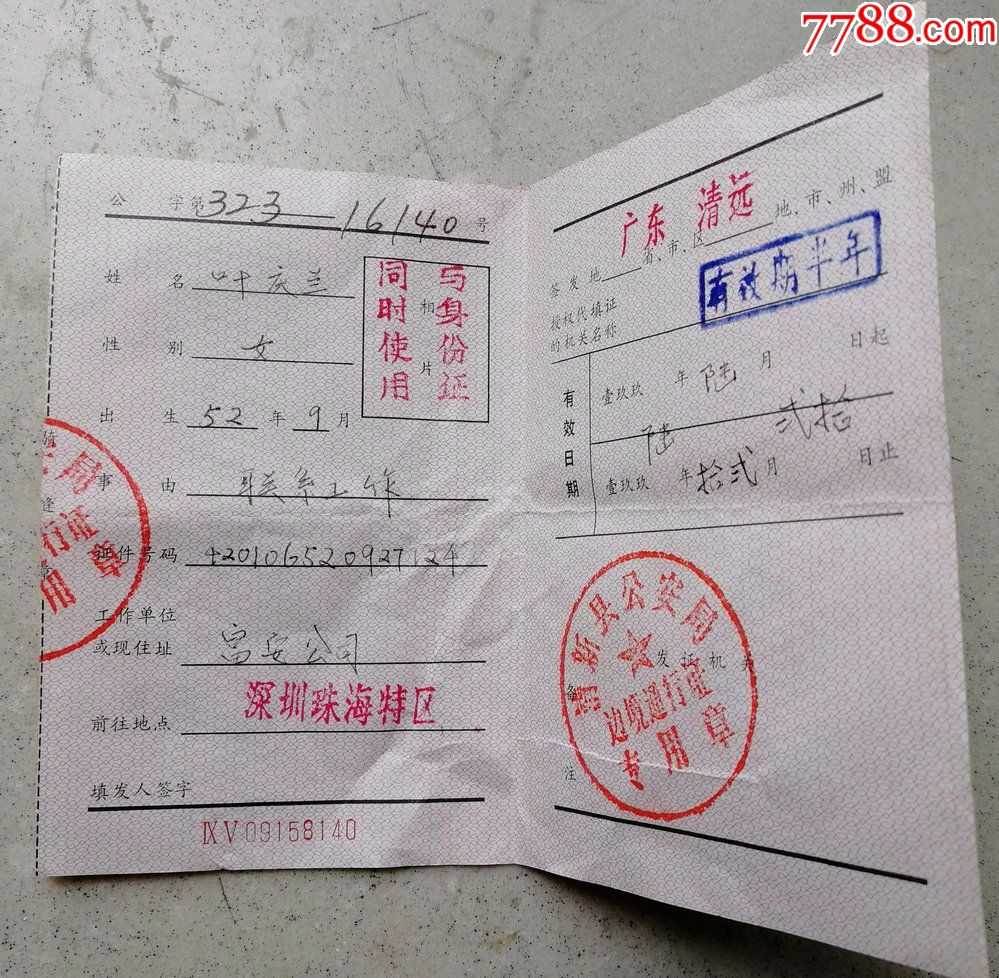 7788.com
公 字第323—16140号
姓名 叶庆兰
相片
与身份证
同时使用
性别 女
出生 52年9月
事由 联系工作
证件号码 420106520927124
工作单位
或现住址 富安公司
前往地点 深圳珠海特区
填发人签字
ⅨⅤ09158140
行证
广东 清远
签发地 省、市、区 地、市、州、盟
授权代填证
的机关名称
有效期半年
有效日期
壹玖玖 年 陆 月 日起
陆 贰拾
壹玖玖 年 拾贰 月 日止
清新县公安局
发证机关
边境通行证
专用章
备注